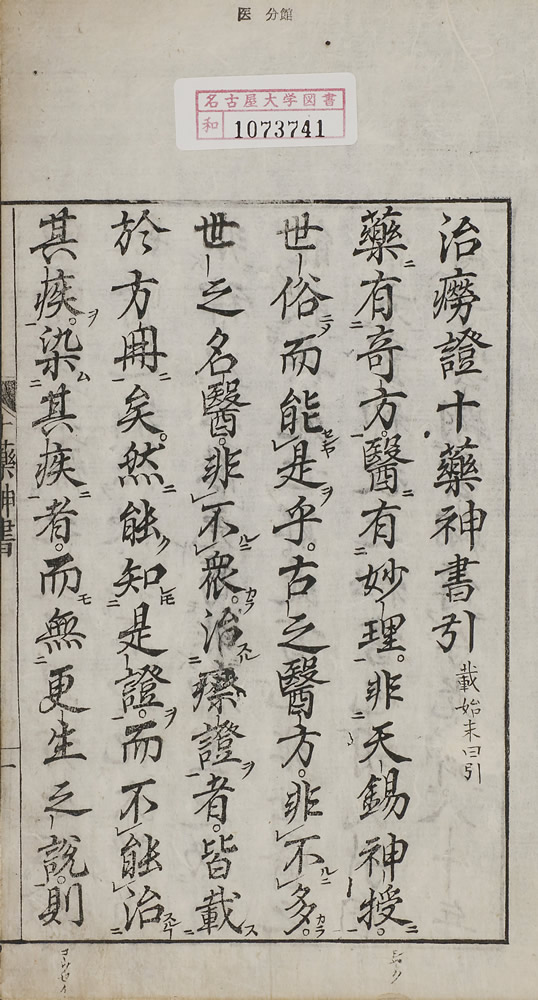 医 分館
名古屋大学図書
和 1073741
治癆證十藥神書引 載始末曰引
藥有竒方。醫有妙理。非天錫神授。
世俗而能是乎。古之醫方。非不多。
世之名醫。非不衆。治療證者。皆載
於方冊矣。然能知是證。而不能治
其疾。染其疾者。而無更生之說。則
十藥神書
一